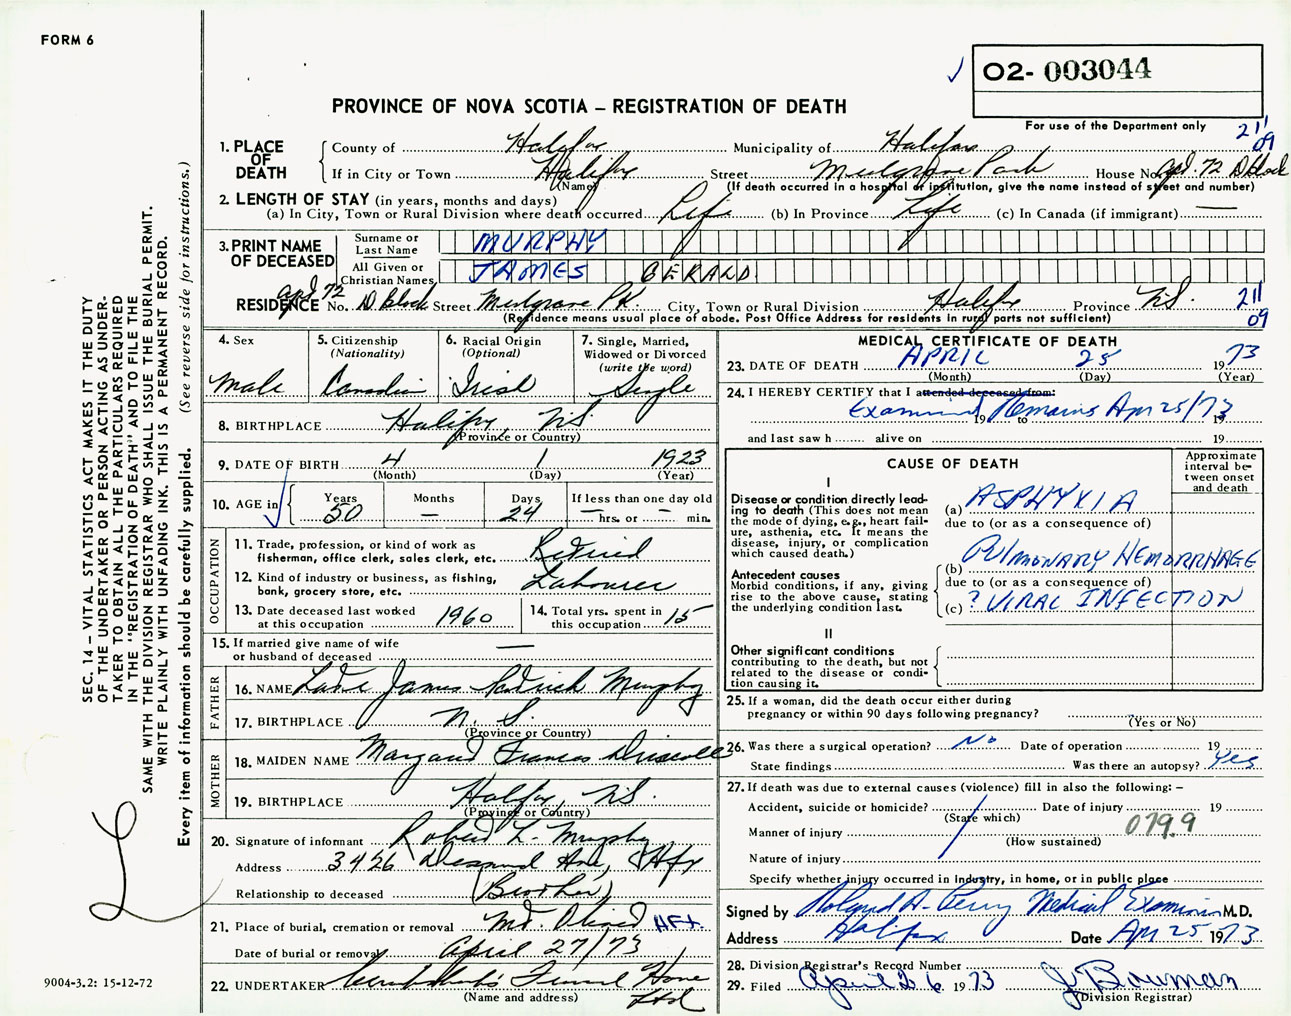 FORM 6
O2- 003044
PROVINCE OF NOVA SCOTIA – REGISTRATION OF DEATH
For use of the Department only
211
09
1. PLACE OF DEATH
County of Halifax Municipality of Halifax
If in City or Town Halifax Street Mulgrave Park House No. apt. 72 D block
(Name) (If death occurred in a hospital or institution, give the name instead of street and number)
2. LENGTH OF STAY (in years, months and days)
(a) In City, Town or Rural Division where death occurred Life (b) In Province Life (c) In Canada (if immigrant) —
3. PRINT NAME OF DECEASED
Surname or Last Name MURPHY
All Given or Christian Names JAMES GERALD
RESIDENCE No. apt 72 D Block Street Mulgrave Pk. City, Town or Rural Division Halifax Province N.S. 211
09
(Residence means usual place of abode. Post Office Address for residents in rural parts not sufficient)
4. Sex
Male
5. Citizenship
(Nationality)
Canadian
6. Racial Origin
(Optional)
Irish
7. Single, Married, Widowed or Divorced
(write the word)
Single
8. BIRTHPLACE Halifax, N.S.
(Province or Country)
9. DATE OF BIRTH 4 1 1923
(Month) (Day) (Year)
10. AGE in
Years 50
Months —
Days 24
If less than one day old
— hrs. or — min.
OCCUPATION
11. Trade, profession, or kind of work as fisherman, office clerk, sales clerk, etc. Retired
12. Kind of industry or business, as fishing, bank, grocery store, etc. Labourer
13. Date deceased last worked at this occupation 1960
14. Total yrs. spent in this occupation 15
15. If married give name of wife or husband of deceased —
FATHER
16. NAME Late James Patrick Murphy
17. BIRTHPLACE N. S.
(Province or Country)
MOTHER
18. MAIDEN NAME Margaret Frances Driscoll
19. BIRTHPLACE Halifax, N.S.
(Province or Country)
20. Signature of informant Robert L. Murphy
Address 3426 Ave, Hfx
Relationship to deceased (Brother)
21. Place of burial, cremation or removal Mt. Olivet HFX.
Date of burial or removal April 27/73
22. UNDERTAKER Cruikshank's Funeral Home Ltd
(Name and address)
MEDICAL CERTIFICATE OF DEATH
23. DATE OF DEATH APRIL 25 1973
(Month) (Day) (Year)
24. I HEREBY CERTIFY that I attended deceased from:
Examined Remains Apr 25/73
19 to 19
and last saw h alive on 19
CAUSE OF DEATH
Approximate interval between onset and death
I
Disease or condition directly leading to death (This does not mean the mode of dying, e.g., heart failure, asthenia, etc. It means the disease, injury, or complication which caused death.)
(a) ASPHYXIA
due to (or as a consequence of)
Antecedent causes
Morbid conditions, if any, giving rise to the above cause, stating the underlying condition last.
(b) PULMONARY HEMORRHAGE
due to (or as a consequence of)
(c) ? VIRAL INFECTION
II
Other significant conditions
contributing to the death, but not related to the disease or condition causing it.
25. If a woman, did the death occur either during pregnancy or within 90 days following pregnancy?
(Yes or No)
26. Was there a surgical operation? No Date of operation 19
State findings Was there an autopsy? Yes
27. If death was due to external causes (violence) fill in also the following: –
Accident, suicide or homicide? Date of injury 19
(State which)
079.9
Manner of injury
(How sustained)
Nature of injury
Specify whether injury occurred in Industry, in home, or in public place
Signed by Roland A. Perry Medical Examiner M.D.
Address Halifax Date Apr 25 1973
28. Division Registrar's Record Number
29. Filed April 26 1973 J. Bowman
(Division Registrar)
SEC. 14 – VITAL STATISTICS ACT MAKES IT THE DUTY
OF THE UNDERTAKER OR PERSON ACTING AS UNDERTAKER
TO OBTAIN ALL THE PARTICULARS REQUIRED
IN THE "REGISTRATION OF DEATH" AND TO FILE THE
SAME WITH THE DIVISION REGISTRAR WHO SHALL ISSUE THE BURIAL PERMIT.
WRITE PLAINLY WITH UNFADING INK. THIS IS A PERMANENT RECORD.
Every item of information should be carefully supplied. (See reverse side for instructions.)
9004-3.2: 15-12-72